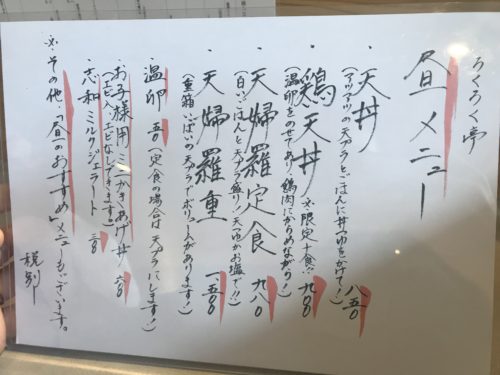 ろくろく亭
昼メニュー
・天丼 八五〇
(アツアツの天プラと、ごはんに丼つゆをかけて!)
・鶏天丼 ※限定十食!! 九八〇
(温卵をのせてあり、鶏肉にからめながら!)
・天婦羅定食 九八〇
(白いごはんと天プラ盛り!天つゆかお塩で!!)
・天婦羅重 一、五〇〇
(重箱いっぱいの天プラでボリュームがあります!)
・温卵 五〇 (定食の場合は天プラにします!)
・お子様用ミニかきあげ丼 六〇〇
(エビ入、エビなしできます)
・志和ミルクジェラート 三〇〇
※その他、「昼のおすすめ」メニューもございます。
税別